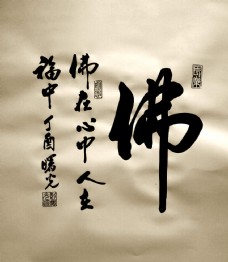 佛
佛在心中人在
福中丁酉曙光